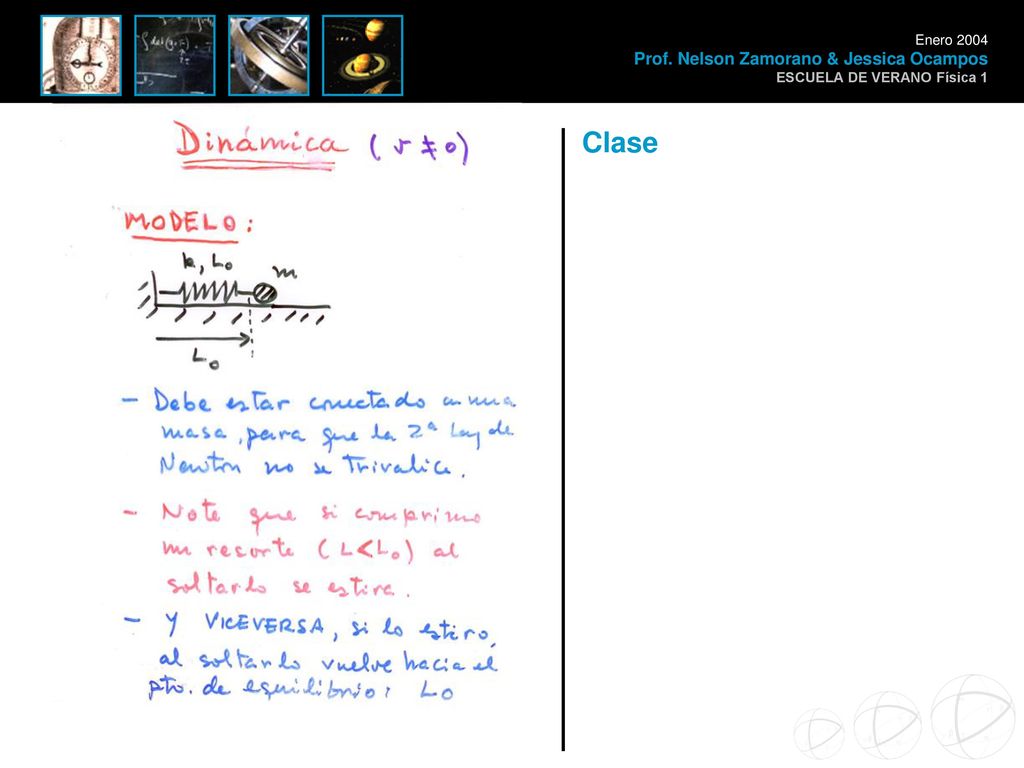 Enero 2004
Prof. Nelson Zamorano & Jessica Ocampos
ESCUELA DE VERANO Física 1
Dinámica (v ≠ 0)
Clase
MODELO:
k, L₀
m
L₀
- Debe estar conectado a una
masa, para que la 2ª Ley de
Newton no se Trivalice.
- Note que si comprimo
un resorte (L<L₀) al
soltarlo se estira.
- Y VICEVERSA, si lo estiro,
al soltarlo vuelve hacia el
pto. de equilibrio: L₀